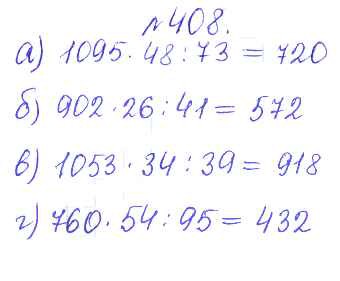 №408.
а) 1095 · 48 : 73 = 720
б) 902 · 26 : 41 = 572
в) 1053 · 34 : 39 = 918
г) 760 · 54 : 95 = 432